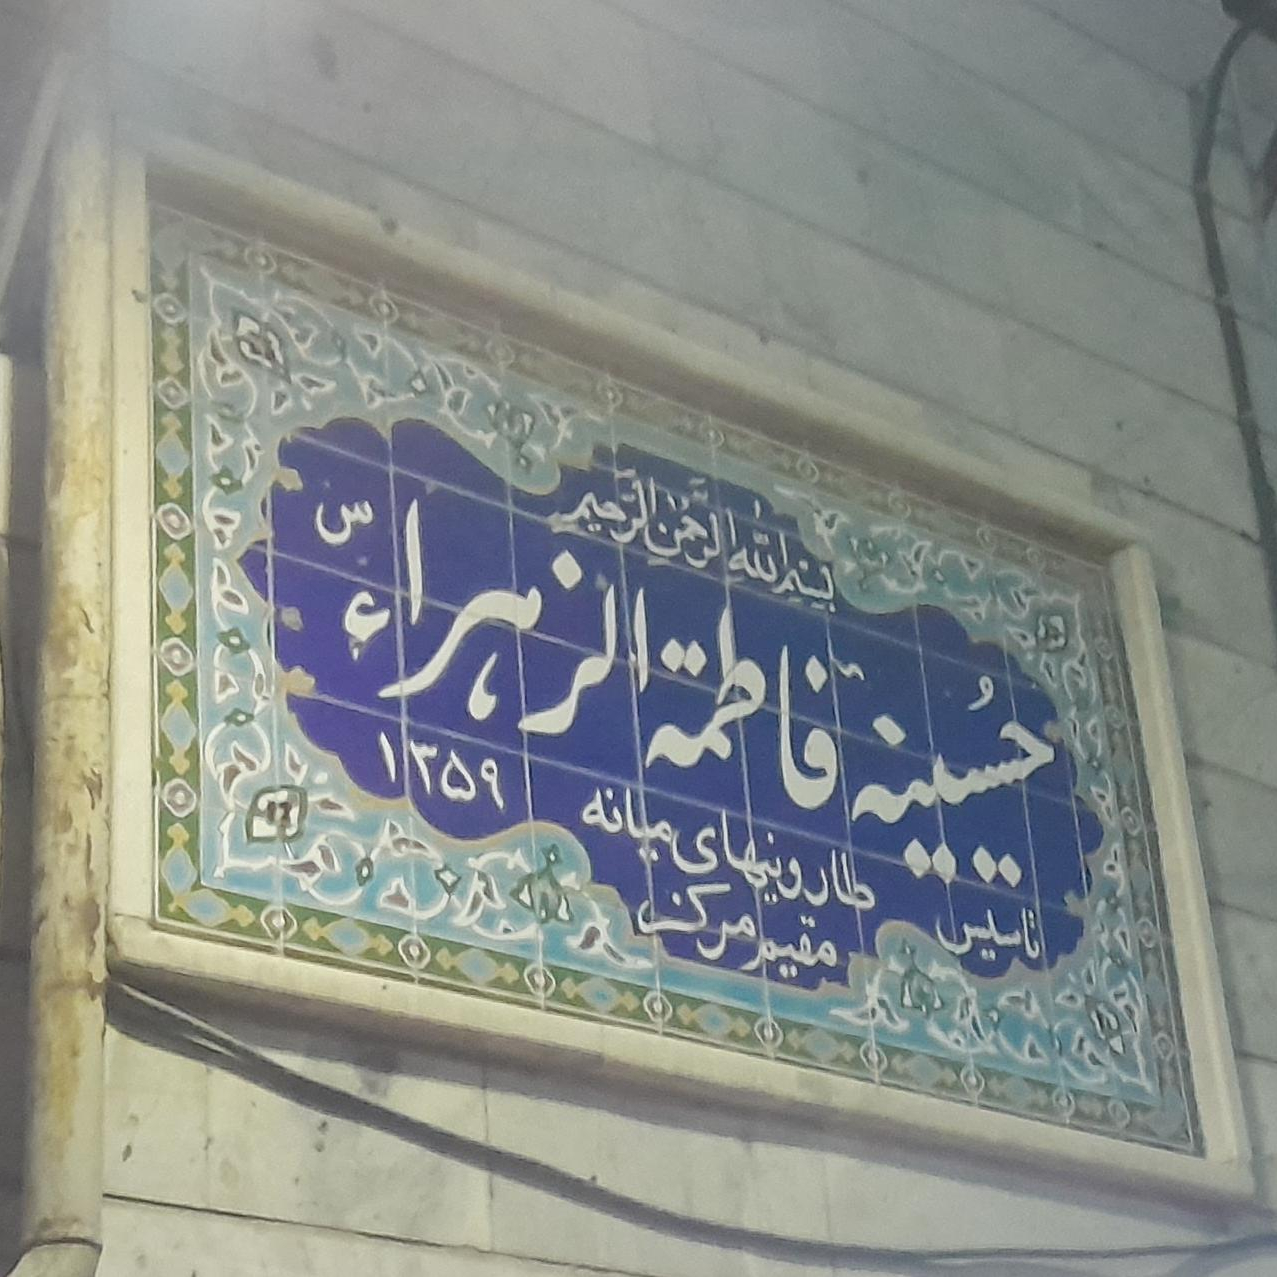 بِسْمِ اللهِ الرَّحْمٰنِ الرَّحیمِ
حُسینیه فاطمة الزهراءِ س
طارونیهای میانه
مقیم مرکز
تاسیس ۱۳۵۹